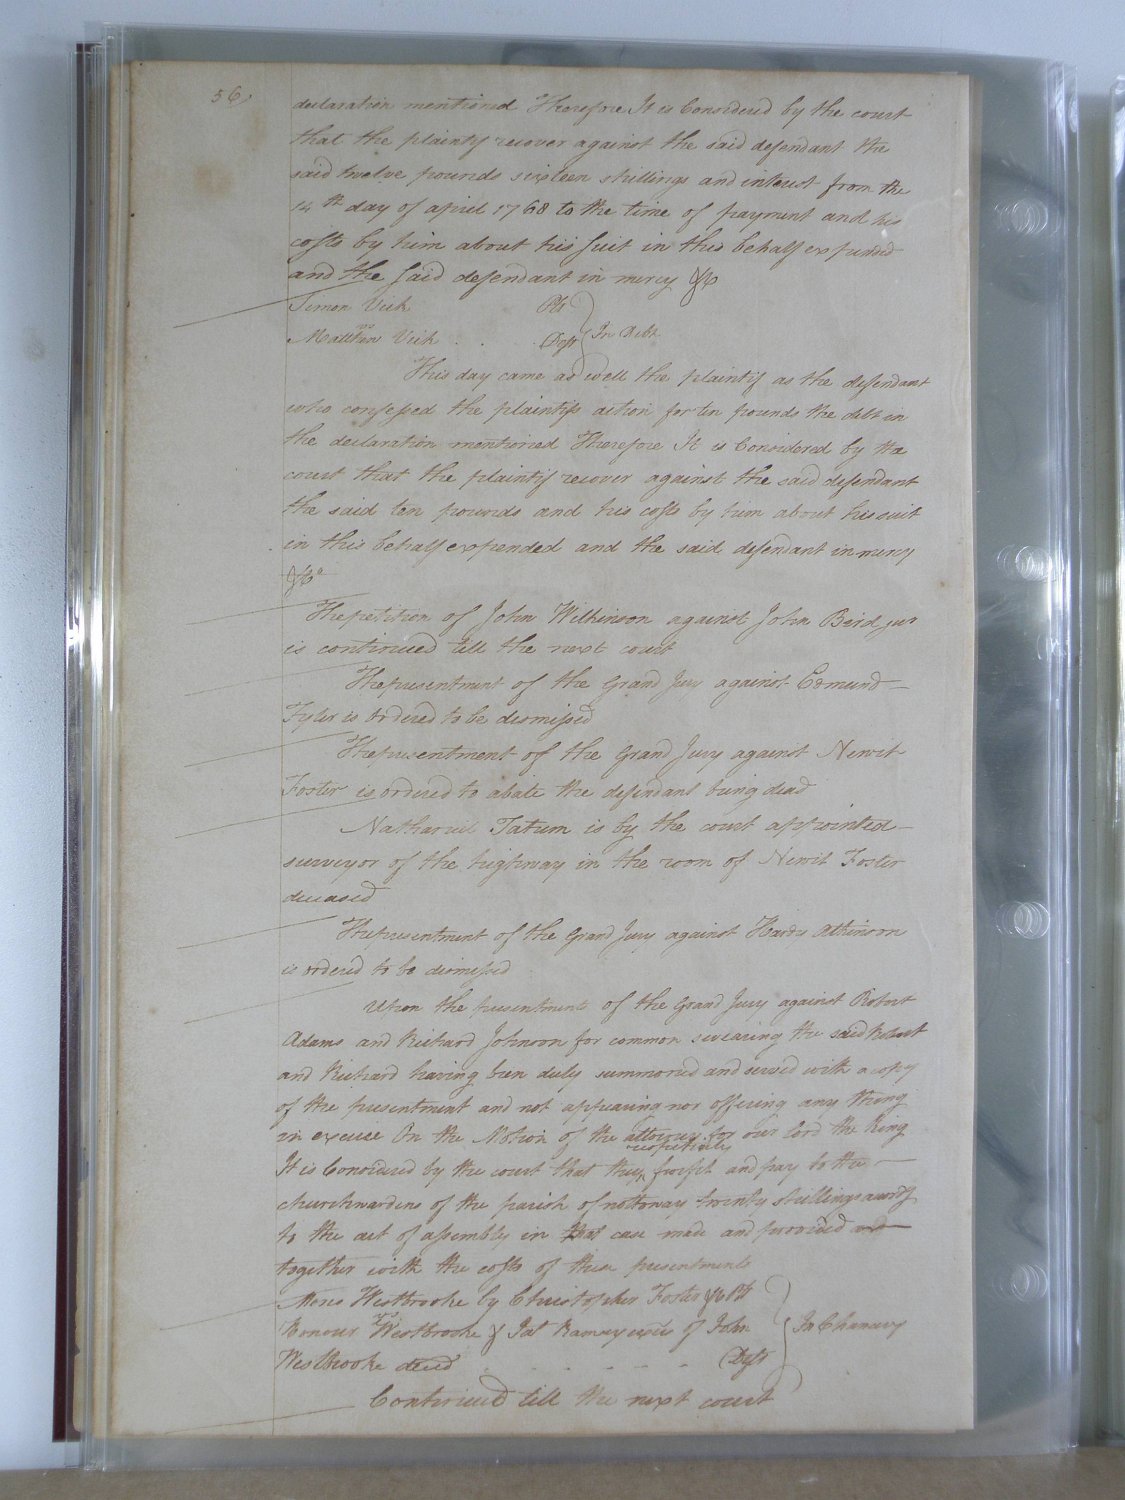 56
declaration mentioned Therefore It is Considered by the court
that the plaintif recover against the said defendant the
said twelve pounds sixteen shillings and interest from the
14th day of april 1768 to the time of payment and his
costs by him about his suit in this behalf expended
and the said defendant in mercy &c
Simon Vick Plt
vs In Debt
Matthew Vick Deft
This day came as well the plaintif as the defendant
who confessed the plaintifs action for ten pounds the debt in
the declaration mentioned Therefore It is Considered by the
court that the plaintif recover against the said defendant
the said ten pounds and his costs by him about his suit
in this behalf expended and the said defendant in mercy
&c
The petition of John Wilkinson against John Bird jur
is continued till the next court
The presentment of the Grand Jury against Edmund
Tyler is ordered to be dismissed
The presentment of the Grand Jury against Newit
Foster is ordered to abate the defendant being dead
Nathaniel Tatum is by the court appointed
surveyor of the highway in the room of Newit Foster
deceased
The presentment of the Grand Jury against Hardy Atkinson
is ordered to be dismissed
Upon the presentments of the Grand Jury against Robert
Adams and Richard Johnson for common swearing the said Robert
and Richard having been duly summoned and served with a copy
of the presentment and not appearing nor offering any thing
in excuse On the Motion of the attorney for our lord the King
respectively
It is Considered by the court that they forfeit and pay to the
churchwardens of the parish of nottoway twenty shillings accordg
to the act of assembly in that case made and provided and
together with the costs of these presentments
Moses Westbrooke by Christopher Foster &c Plt
vs
Honour Westbrooke & Jat Ramsey exrs of John In Chancery
Westbrooke deced Defts
Continued till the next court